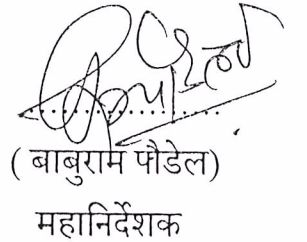 ( बाबुराम पौडेल)
महानिर्देशक